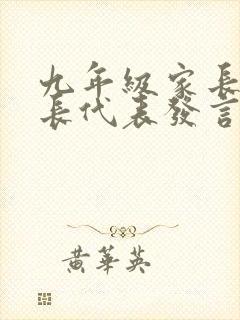 九年級家長
長代表發言
黃華英